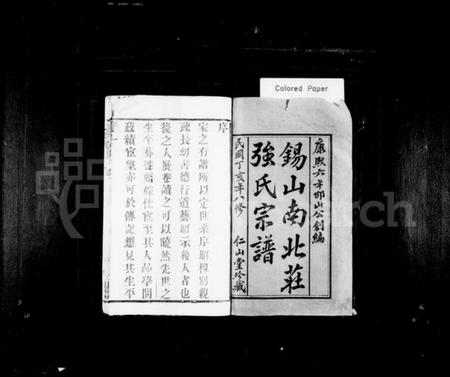 Colored Paper
康熙六年邯山公創編
錫山南北莊
強氏宗譜
民國丁亥年八修 仁山堂珍藏
序
家之有譜所以定世系序昭穆別親
疏長幼善德行道藝昭示後人者也
後之人展卷讀之可以曉然先世之
生卒葬 婚嫁仕宦至其人品學問
政績宦望亦可於傳記想見其生平